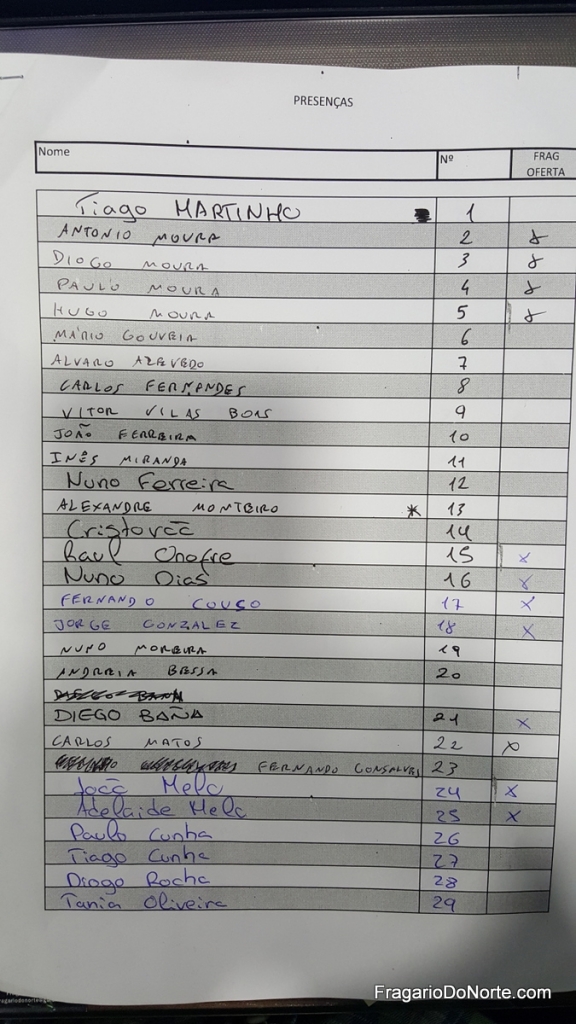 PRESENÇAS
Nome Nº FRAG OFERTA
Tiago MARTINHO 1
ANTONIO MOURA 2 x
DIOGO MOURA 3 x
PAULO MOURA 4 x
HUGO MOURA 5 x
MÁRIO GOUVEIA 6
ALVARO AZEVEDO 7
CARLOS FERNANDES 8
VITOR VILAS BOAS 9
JOÃO FERREIRA 10
INÊS MIRANDA 11
Nuno Ferreira 12
ALEXANDRE MONTEIRO * 13
Cristovão 14
Raul Onofre 15 x
Nuno Dias 16 x
FERNANDO COUSO 17 x
JORGE GONZALEZ 18 x
NUNO MOREIRA 19
ANDREIA BESSA 20
DIEGO BAÑA 21 x
CARLOS MATOS 22 x
FERNANDO GONSALVES 23
João Melo 24 x
Adelaide Melo 25 x
Paulo Cunha 26
Tiago Cunha 27
Diogo Rocha 28
Tania Oliveira 29
FragarioDoNorte.com